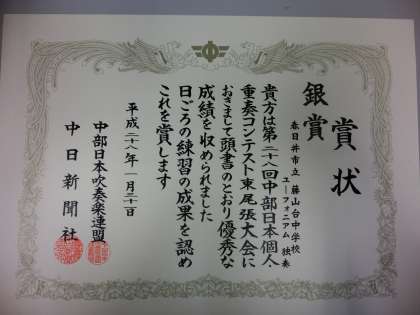 賞状
銀賞
春日井市立 藤山台中学校
ユーフォニアム 独奏
貴方は第二十八回中部日本個人
重奏コンテスト東尾張大会に
おきまして頭書のとおり優秀な
成績を収められました
日ごろの練習の成果を認め
これを賞します
平成二十八年一月二十日
中部日本吹奏楽連盟
中日新聞社